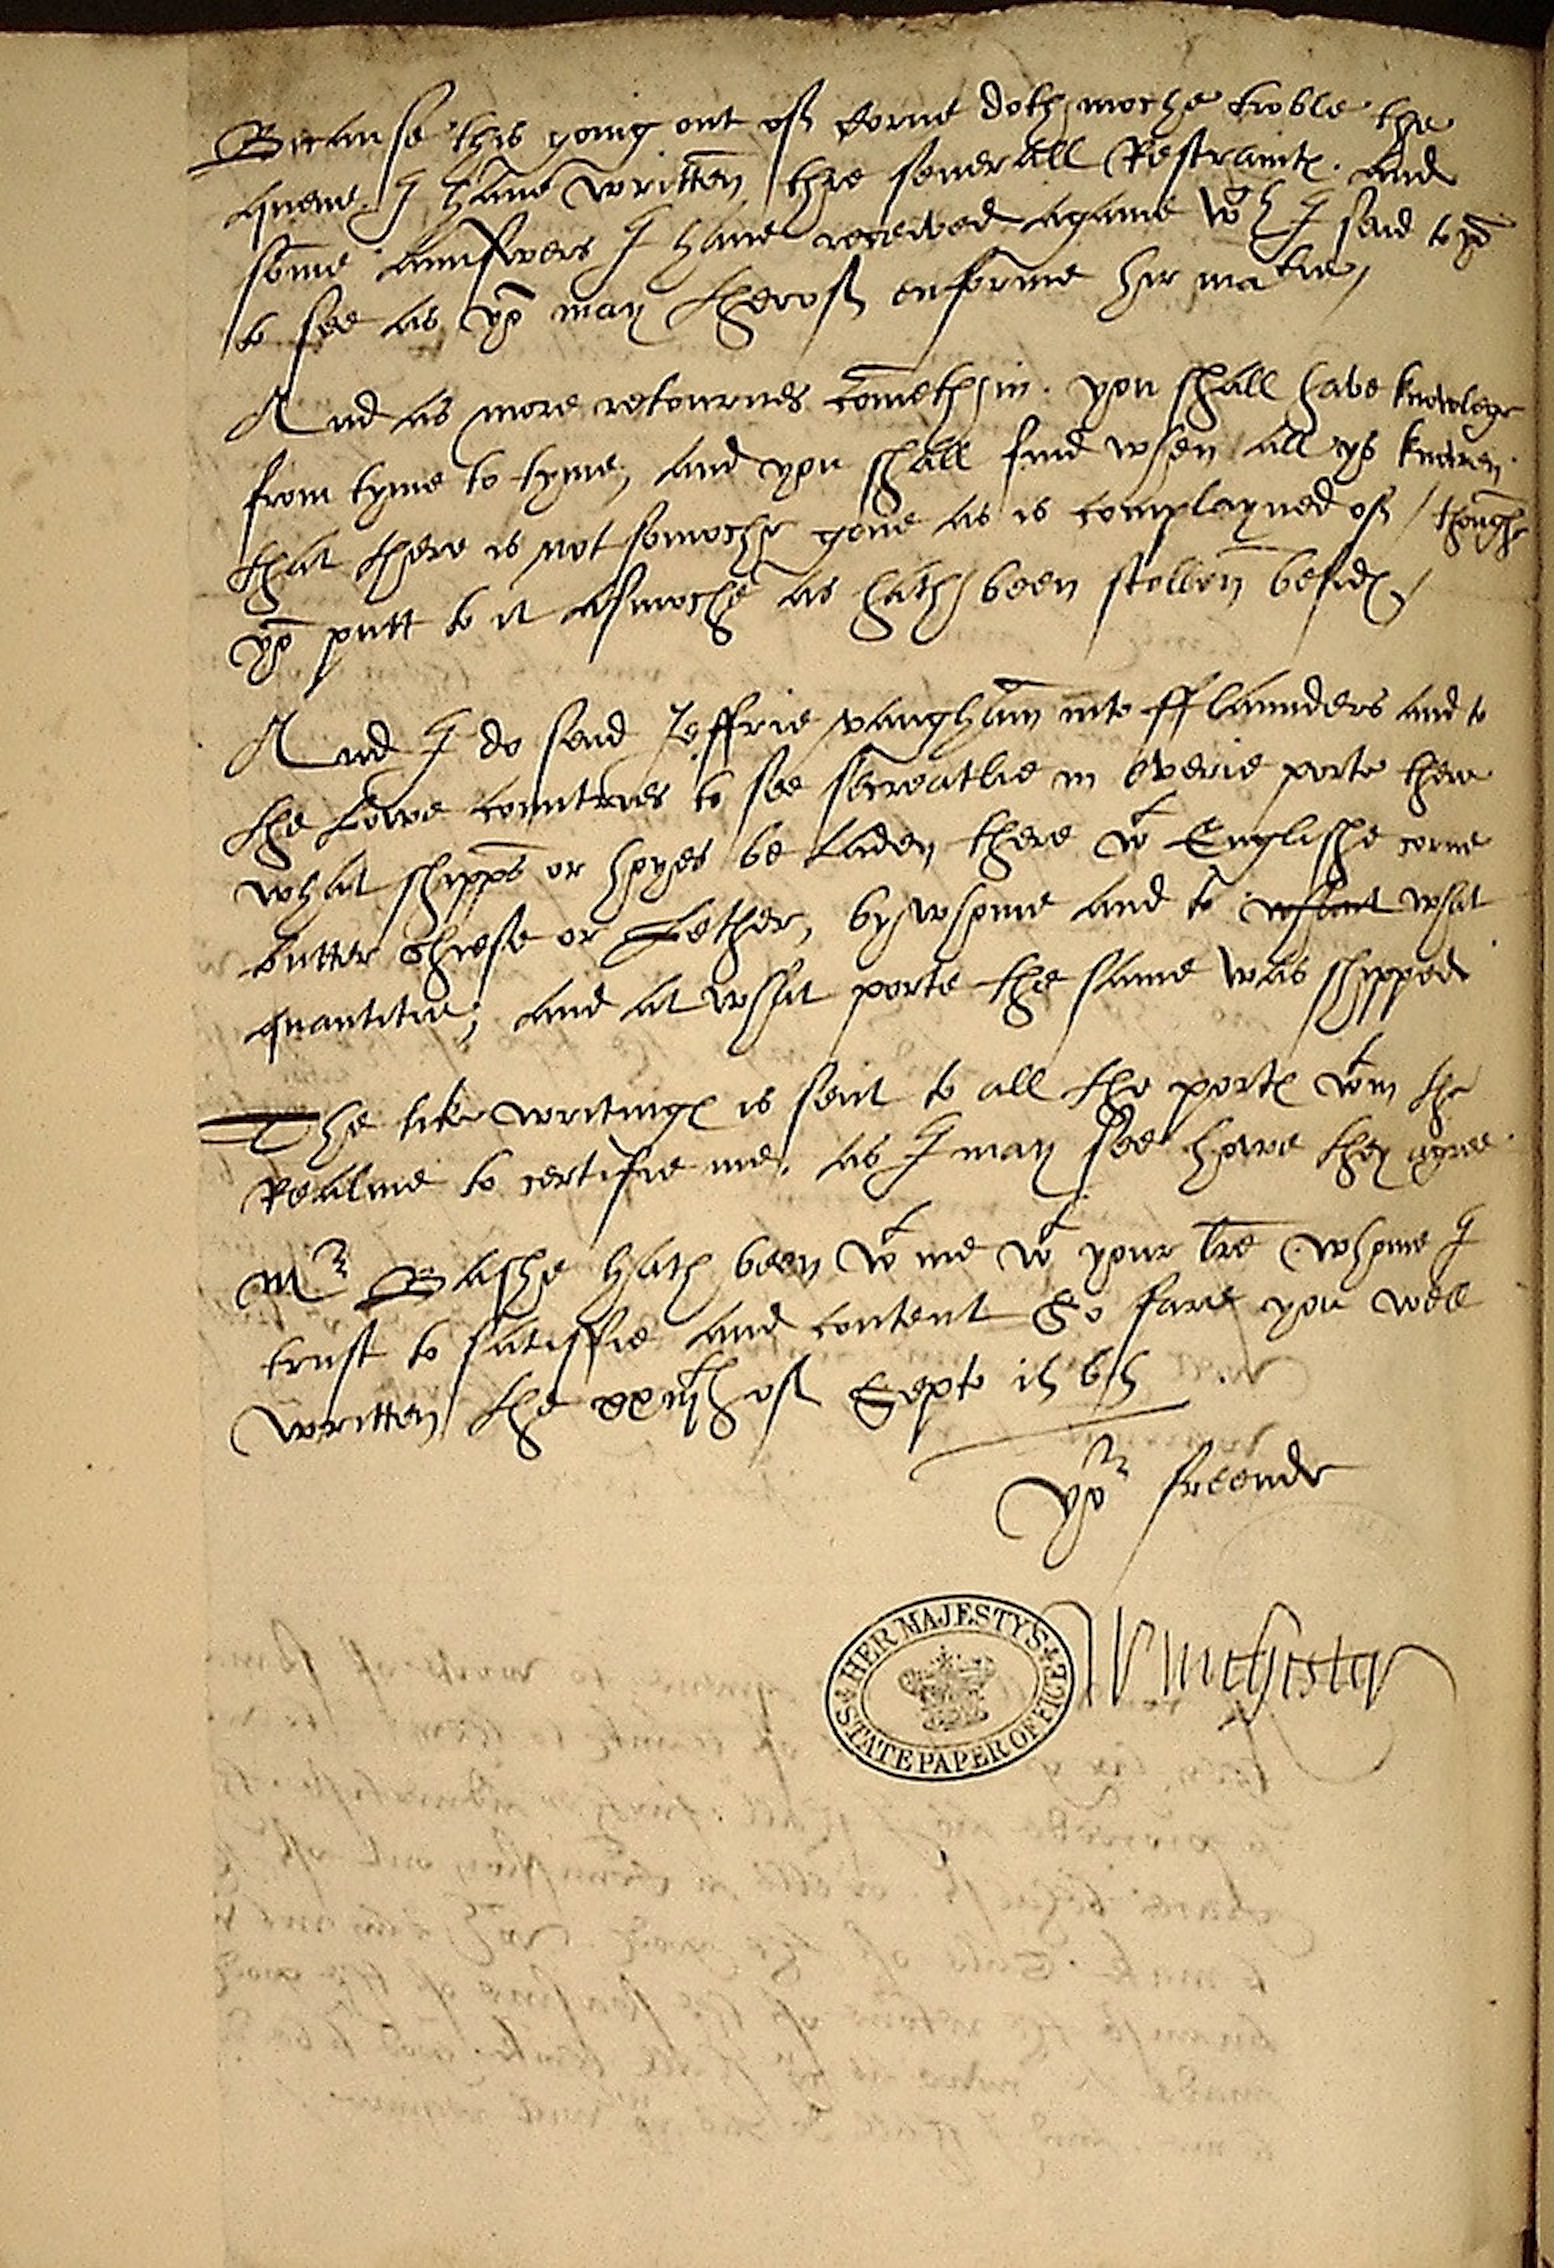 Because this going out of Corne doth moche troble the
quene. I have written thre severall Restraint℮. And
some aunswers I have received agayne wch I send to yo
to see as yo may therof enforme hir matie,
And as more retournes cometh in. you shall have knowlege
from tyme to tyme, and you shall find when all ys knowen
that there is not somoche gone as is complayned of / though
yo putt to it asmoche as hath been stollen besid℮ /
And I do send Jeffrie vaughan into fflaunders and to
the Lowe Countries to see secreatlie in everie porte there
what shipps or hoyes be laden there wt Englishe corne
butter chiese or Lether, by whome and to whant what
quantitie, and at what porte the same was shipped
The like writing℮ is sent to all the port℮ wtin the
Realme to certifie me, as I may see howe they agree
Mr Bashe hath been wt me wt your lre whome I
trust to satisfie and content So fare you well
written the xxiiijth of Septo 1565
Yor freende
Winchester
HER MAJESTY'S
STATE PAPER OFFICE